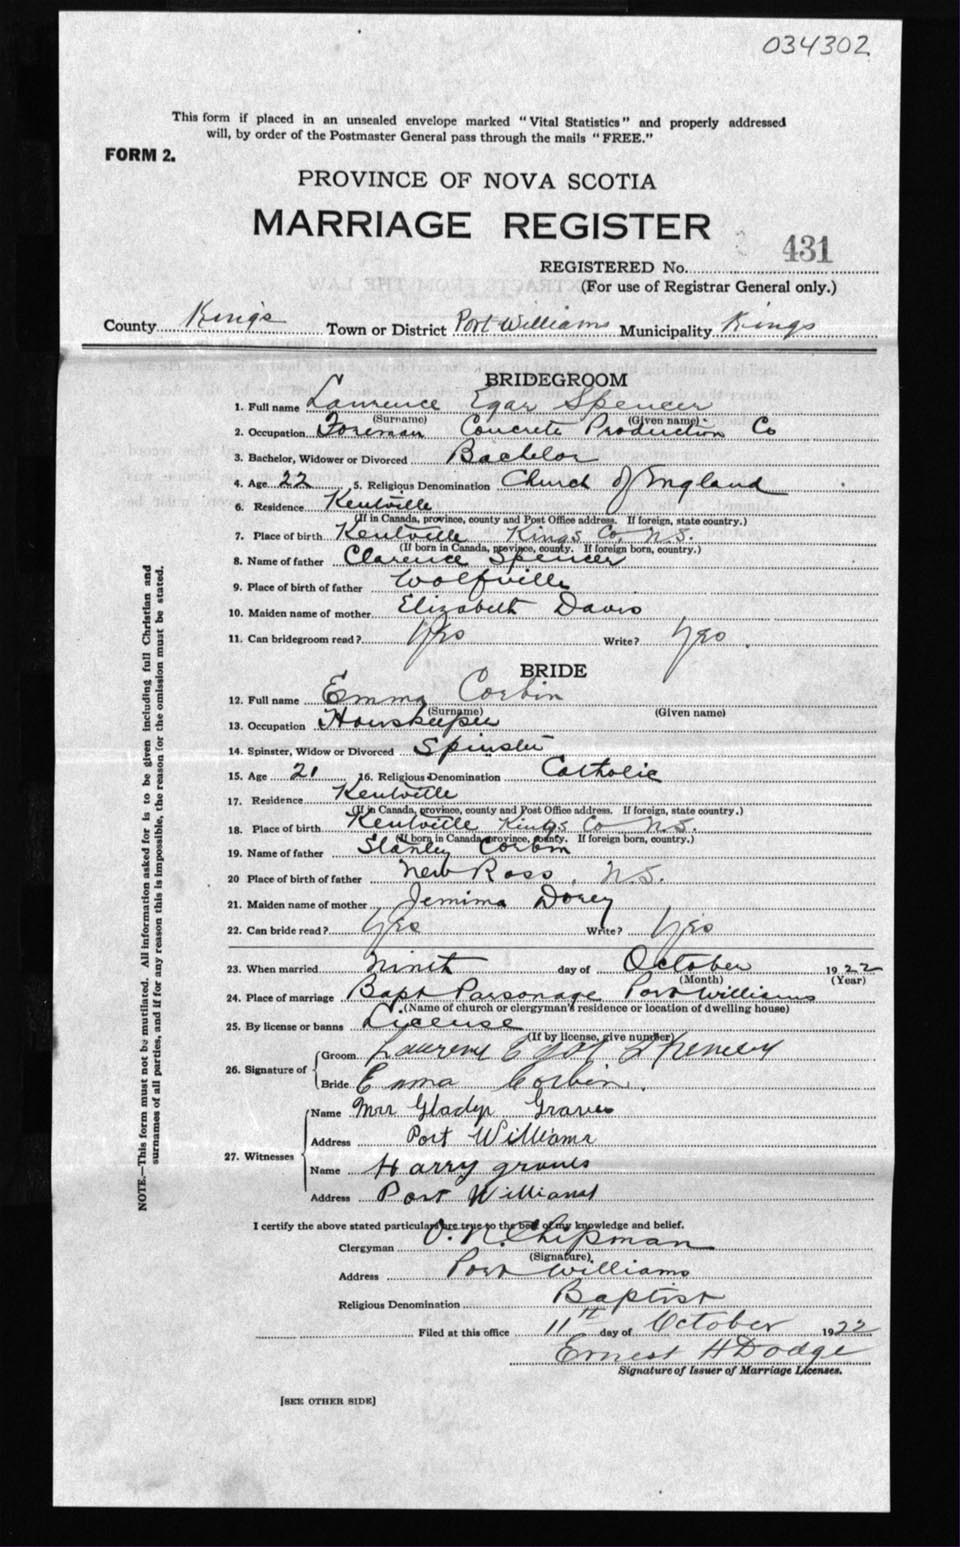 034302
This form if placed in an unsealed envelope marked "Vital Statistics" and properly addressed
will, by order of the Postmaster General pass through the mails "FREE."
FORM 2.
PROVINCE OF NOVA SCOTIA
MARRIAGE REGISTER
431
REGISTERED No.
(For use of Registrar General only.)
County Kings Town or District Port Williams Municipality Kings
BRIDEGROOM
1. Full name Lawrence Egar Spencer
(Surname) (Given name)
2. Occupation Foreman Concrete Production Co
3. Bachelor, Widower or Divorced Bachelor
4. Age 22 5. Religious Denomination Church of England
6. Residence Kentville
(If in Canada, province, county and Post Office address. If foreign, state country.)
7. Place of birth Kentville Kings Co, N.S.
(If born in Canada, province, county. If foreign born, country.)
8. Name of father Clarence Spencer
9. Place of birth of father Wolfville
10. Maiden name of mother Elizabeth Davis
11. Can bridegroom read? Yes Write? Yes
BRIDE
12. Full name Emma Corbin
(Surname) (Given name)
13. Occupation Houskeeper
14. Spinster, Widow or Divorced Spinster
15. Age 21 16. Religious Denomination Catholic
17. Residence Kentville
(If in Canada, province, county and Post Office address. If foreign, state country.)
18. Place of birth Kentville Kings Co N.S.
(If born in Canada, province, county. If foreign born, country.)
19. Name of father Stanley Corbin
20 Place of birth of father New Ross, N.S.
21. Maiden name of mother Jemima Dorey
22. Can bride read? Yes Write? Yes
23. When married Ninth day of October 1922
(Month) (Year)
24. Place of marriage Bapt Parsonage Port Williams
(Name of church or clergyman's residence or location of dwelling house)
25. By license or banns License
(If by license, give number)
26. Signature of Groom Laurence Egar Spencer
Bride Emma Corbin.
27. Witnesses Name Mrs Gladys Graves
Address Port Williams
Name Harry graves
Address Port Williams
I certify the above stated particulars are true to the best of my knowledge and belief.
Clergyman O. N. Chipman
(Signature)
Address Port Williams
Religious Denomination Baptist
Filed at this office 11th day of October 1922
Ernest H Dodge
Signature of Issuer of Marriage Licenses.
[SEE OTHER SIDE]
NOTE.—This form must not be mutilated. All information asked for is to be given including full Christian and
surnames of all parties, and if for any reason this is impossible, the reason for the omission must be stated.